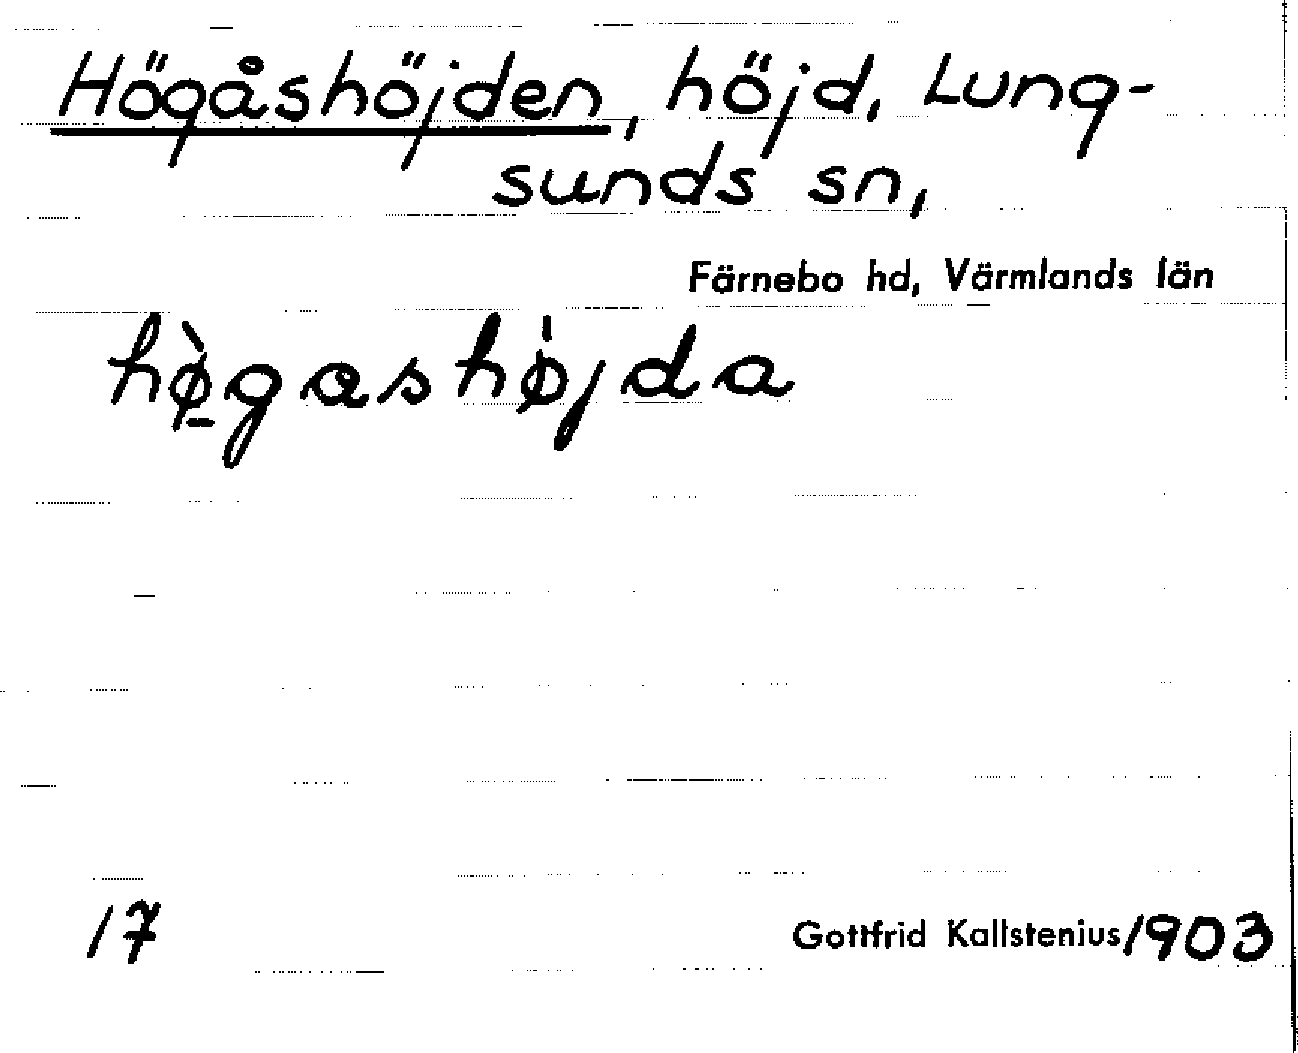 Högåshöjden, höjd, Lung-
sunds sn,
Färnebo hd, Värmlands län
hø̠̀gashø̍jda
17
Gottfrid Kallstenius 1903